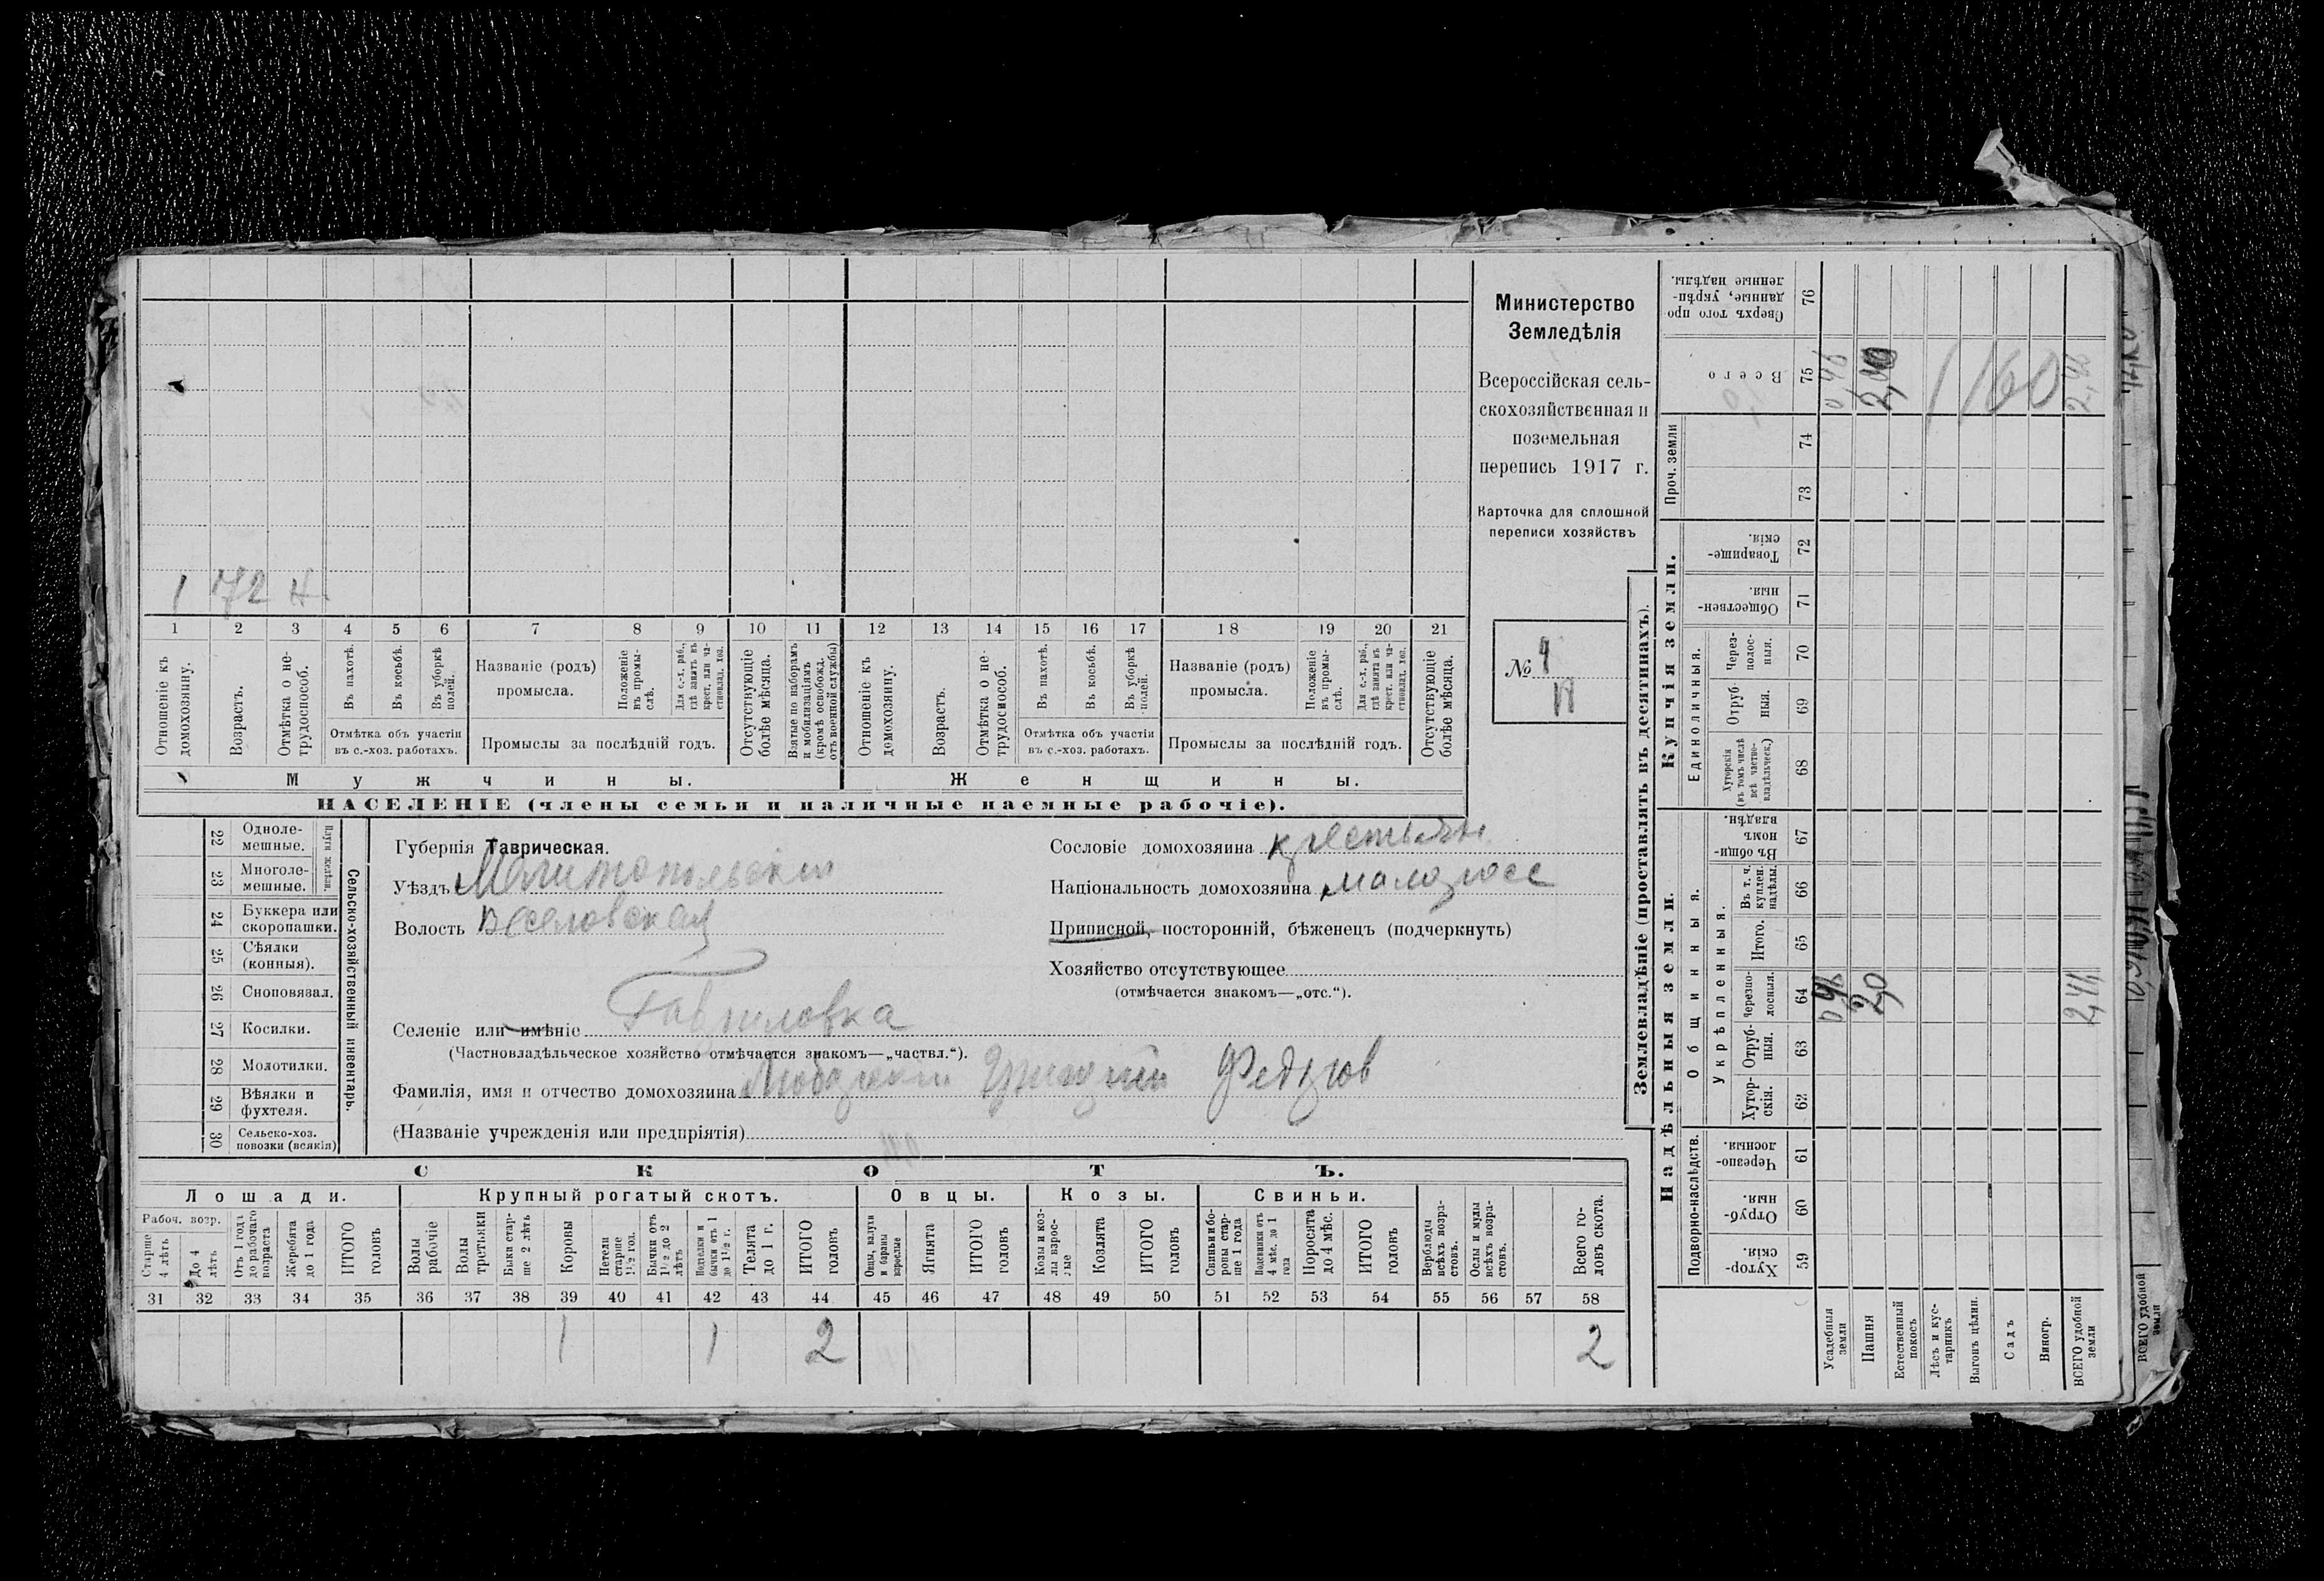 1 72 н.
1 2 3 4 5 6 7 8 9 10 11 12 13 14 15 16 17 18 19 20 21
Отношеніе къ домохозяину.
Возрастъ.
Отмѣтка о не-
трудоспособ.
Въ пахотѣ.
Въ косьбѣ.
Въ уборкѣ полей.
Отмѣтка объ участіи
въ с.-хоз. работахъ.
Названіе (родъ)
промысла.
Положеніе въ промы-
слѣ.
Для с.-х. раб., гдѣ занятъ въ крест. или ча-
стновлад. хоз.
Промыслы за послѣдній годъ.
Отсутствующіе болѣе мѣсяца.
Взятые по наборамъ и мобилизаціямъ (кромѣ освобожд. отъ военной службы)
Отношеніе къ домохозяину.
Возрастъ.
Отмѣтка о не-
трудоспособ.
Въ пахотѣ.
Въ косьбѣ.
Въ уборкѣ полей.
Отмѣтка объ участіи
въ с.-хоз. работахъ.
Названіе (родъ)
промысла.
Положеніе въ промы-
слѣ.
Для с.-х. раб., гдѣ занята въ крест. или ча-
стновлад. хоз.
Промыслы за послѣдній годъ.
Отсутствующіе болѣе мѣсяца.
Мужчины.
Женщины.
НАСЕЛЕНІЕ (члены семьи и наличные наемные рабочіе).
Министерство
Земледѣлія
Всероссійская сель-
скохозяйственная и
поземельная
перепись 1917 г.
Карточка для сплошной
переписи хозяйствъ
№
22 Одноле-
мешные.
23 Многоле-
мешные.
Плуги желѣзн.
24 Буккера или
скоропашки.
25 Сѣялки
(конныя).
26 Сноповязал.
27 Косилки.
28 Молотилки.
29 Вѣялки и
фухтеля.
30 Сельско-хоз.
повозки (всякія)
Сельско-хозяйственный инвентарь.
Губернія Таврическая.
Уѣздъ Мелитопольскій
Волость Веселовская
Селеніе или имѣніе Гавриловка
(Частновладѣльческое хозяйство отмѣчается знакомъ—„частвл.“).
Фамилія, имя и отчество домохозяина Григорій Федоров
(Названіе учрежденія или предпріятія)
Сословіе домохозяина крестьян
Національность домохозяина малоросс
Приписной, посторонній, бѣженецъ (подчеркнуть)
Хозяйство отсутствующее
(отмѣчается знакомъ—„отс.“).
СКОТЪ.
Лошади.
Рабоч. возр.
Старше 4 лѣтъ
До 4 лѣтъ
Отъ 1 года до рабочаго возраста
Жеребята до 1 года
ИТОГО головъ
Крупный рогатый скотъ.
Волы рабочіе
Волы третьяки
Быки стар-
ше 2 лѣтъ
Коровы
Нетели старше 1½ год.
Бычки отъ 1½ до 2 лѣтъ
Подтелки и бычки отъ 1 до 1½ г.
Телята до 1 г.
ИТОГО головъ
Овцы.
Овцы, валухи и бараны взрослые
Ягнята
ИТОГО головъ
Козы.
Козы и коз-
лы взрос-
лые
Козлята
ИТОГО головъ
Свиньи.
Свиньи и бо-
ровы стар-
ше 1 года
Подсвинки отъ 4 мѣс. до 1 года
Поросята до 4 мѣс.
ИТОГО головъ
Верблюды всѣхъ возра-
стовъ.
Ослы и мулы всѣхъ возра-
стовъ.
Всего го-
ловъ скота.
31 32 33 34 35 36 37 38 39 40 41 42 43 44 45 46 47 48 49 50 51 52 53 54 55 56 57 58
1 1 2 2
Землевладѣніе (проставлять въ десятинахъ).
Надѣльныя земли.
Купчія земли.
Проч. земли
Подворно-наслѣдств.
Общинныя.
Укрѣпленныя.
Единоличныя.
Хутор-
скія.
59
Отруб-
ныя.
60
Черезпо-
лосныя.
61
Хутор-
скія.
62
Отруб-
ныя.
63
Черезпо-
лосныя.
64
Итого.
65
Въ т. ч. куплен. надѣлы.
66
Въ общи-
номъ владѣн.
67
Хуторскія (въ томъ числѣ всѣ частно-
владѣльческ.)
68
Отруб-
ныя.
69
Через-
полос-
ныя.
70
Обществен-
ныя.
71
Товарище-
скія.
72
73
74
Всего
75
Сверхъ того про-
данные, укрѣп-
ленные надѣлы.
76
Усадебныя земли
Пашня 2,0
Естественный покосъ
Лѣсъ и кус-
тарникъ
Выгонъ цѣлин.
Садъ
Виногр.
ВСЕГО удобной земли
ВСЕГО удобной земли